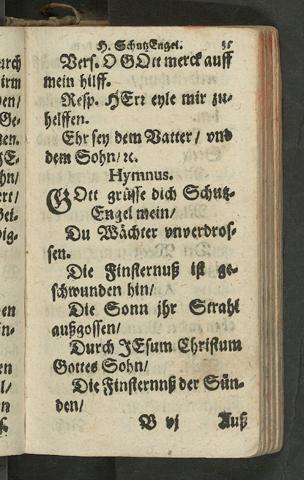 H. SchutzEngel. 35
Vers. O GOtt merck auff
mein hilff.
Resp. HErr eyle mir zu-
helffen.
Ehr sey dem Vatter/ vnd
dem Sohn/ ꝛc.
Hymnus.
GOtt grüsse dich Schutz-
Engel mein/
Du Wächter vnverdros-
sen.
Die Finsternuß ist ge-
schwunden hin/
Die Sonn jhr Strahl
außgossen/
Durch JEsum Christum
Gottes Sohn/
Die Finsternnß der Sün-
den/
B vj Auß